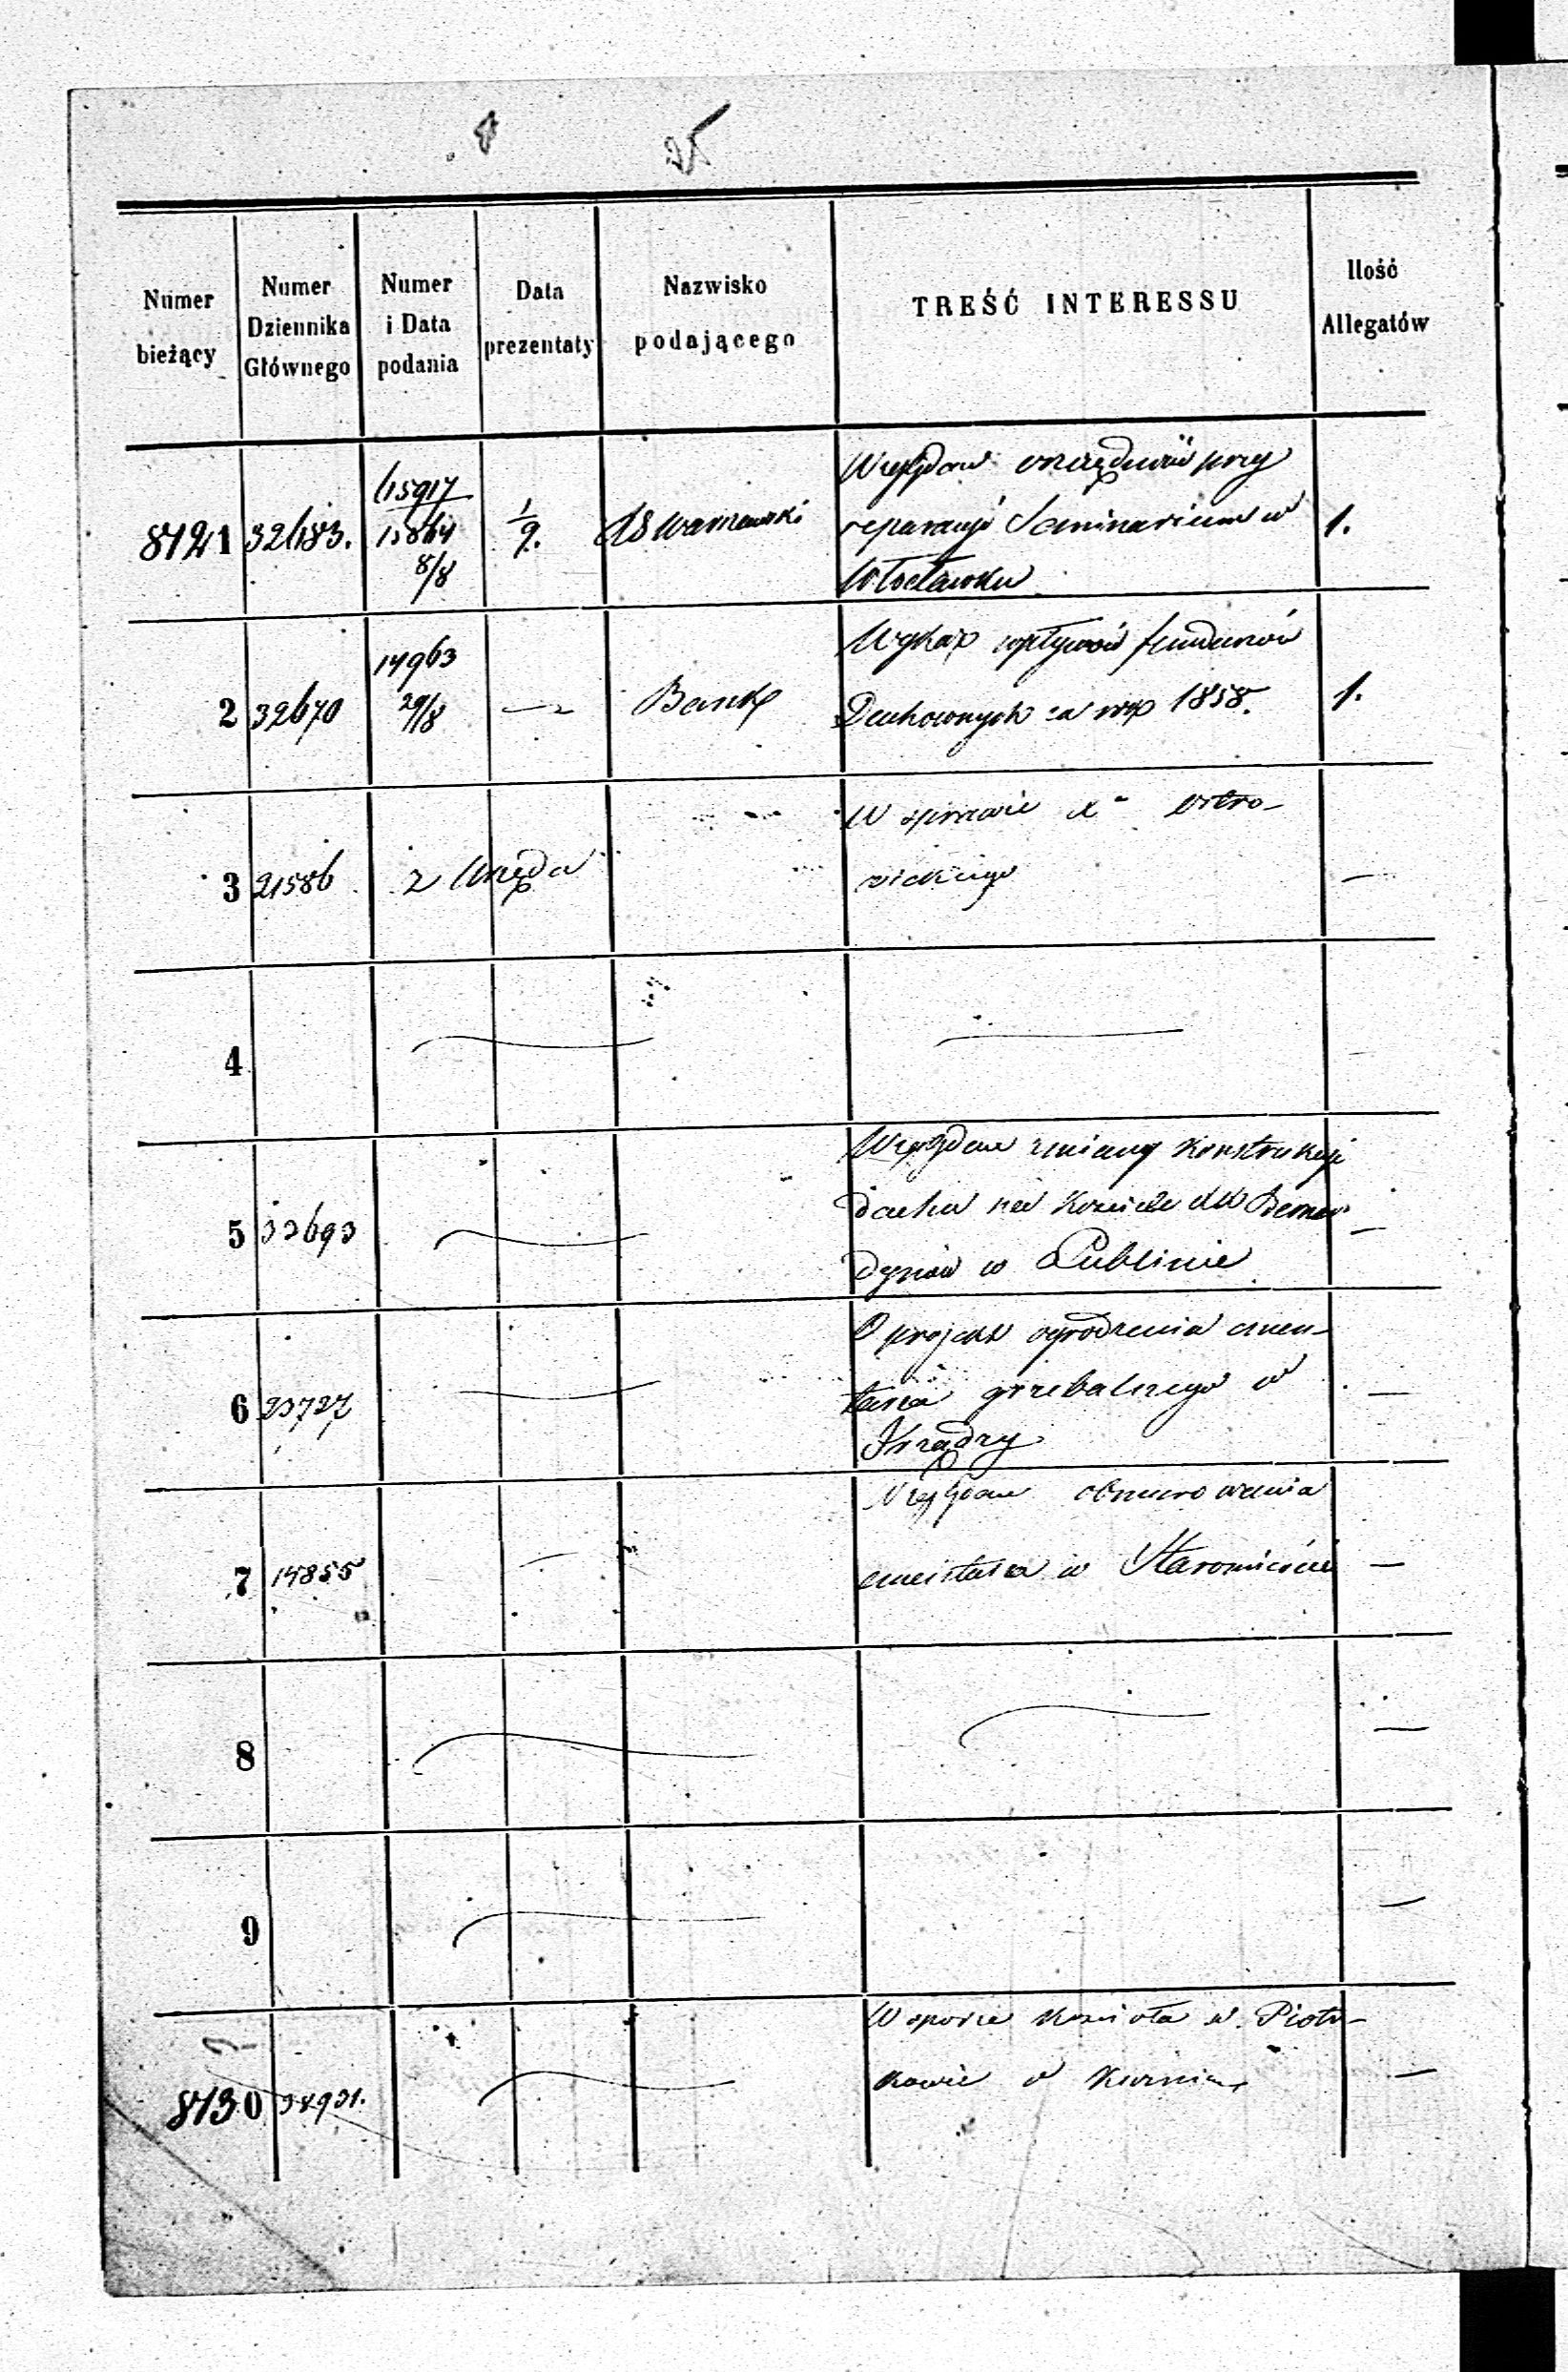 25
Numer bieżący
Numer Dziennika Głównego
Numer i Data podania
Data prezentaty
Nazwisko podającego
TREŚĆ INTERESSU
Ilość Allegatów
8121 32683. 15917 1/9. Warszawski Względem urządzeń przy 1.
15864 reparacyi Seminarium w
8/8 Włocławku
2 32670 14963 Bank Wykaz wpływów funduszów 1.
29/8 Duchownych za rok 1858.
3 21586 z Urzędu W sprawie Xa Ostro-
wickiego —
4
5 33693 Względem zmiany konstrukcyi
dachu na kościele XX Bernar —
dynów w Lublinie
6 23727 O projekt ogrodzenia cmen-
tarza grzebalnego w —
7 14855 Względem obmurowania
cmentarza w Staromieściu —
8 —
9 —
8130 34931. W sporze kościoła w Piotr-
kowie —